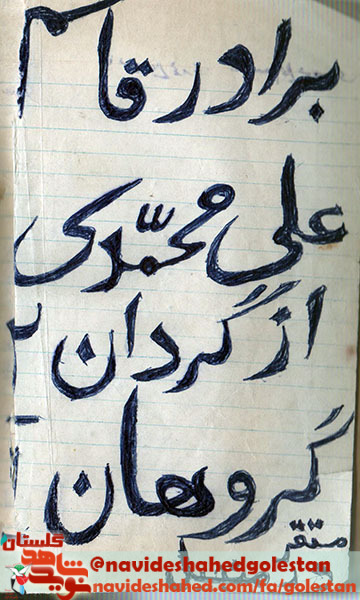 برادر قاسم
علی محمدی
از گردان ۲
گروهان ۱
گلستان
نوید شاهد
@navideshahedgolestan
navideshahed.com/fa/golestan